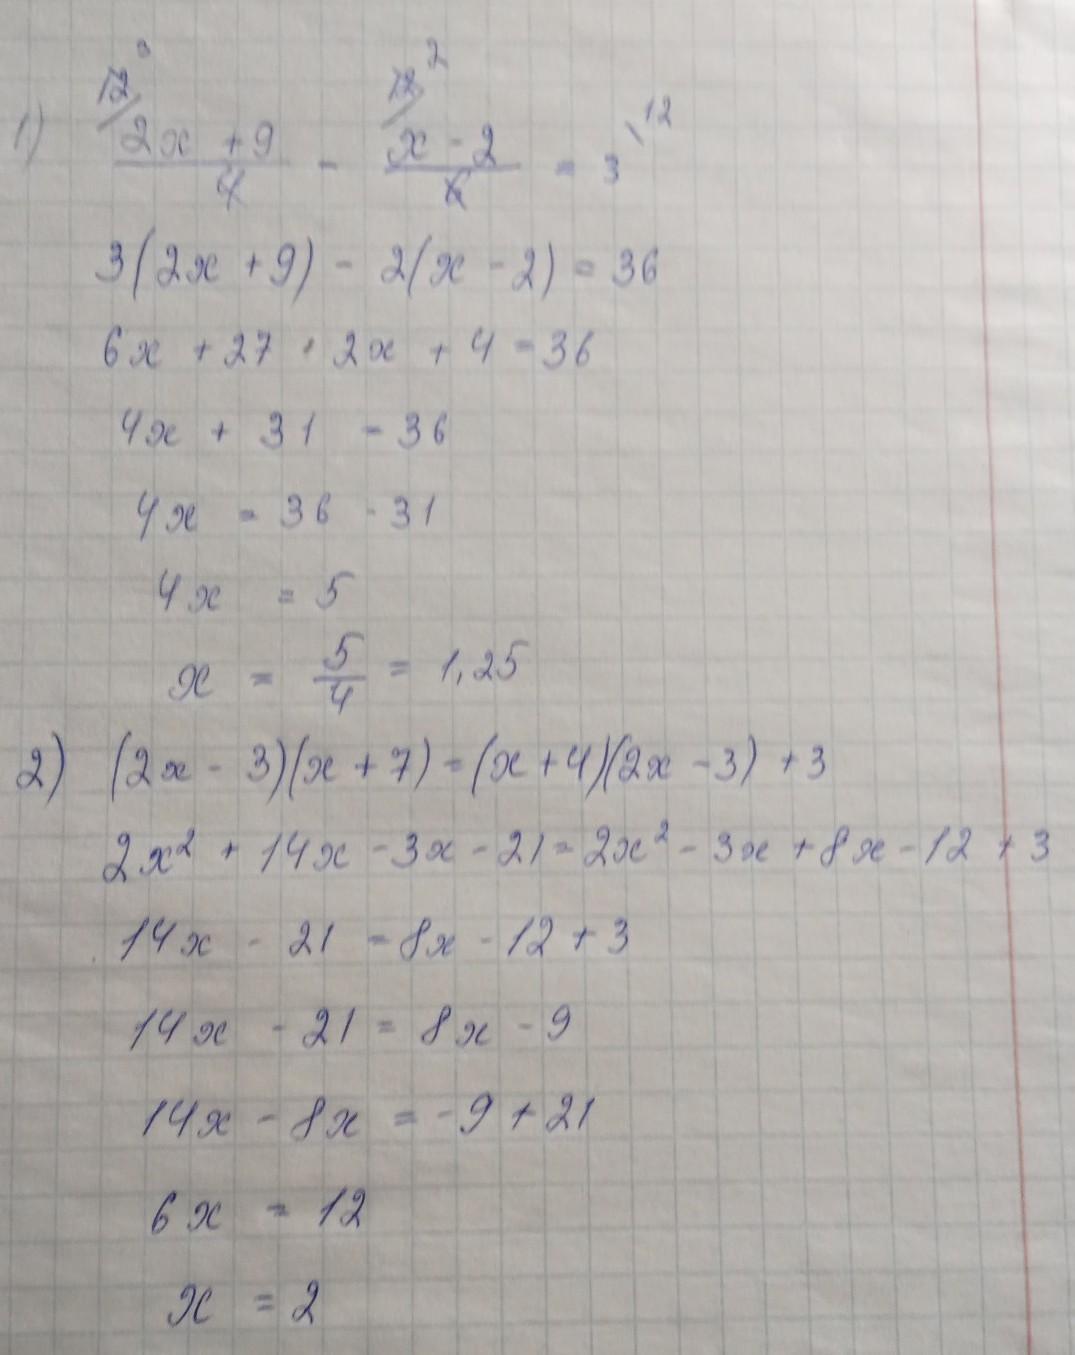 12 3 12 2
1) (2x + 9)/4 - (x - 2)/6 = 3 \12
3(2x + 9) - 2(x - 2) = 36
6x + 27 - 2x + 4 = 36
4x + 31 = 36
4x = 36 - 31
4x = 5
x = 5/4 = 1,25
2) (2x - 3)(x + 7) = (x + 4)(2x - 3) + 3
2x² + 14x - 3x - 21 = 2x² - 3x + 8x - 12 + 3
14x - 21 = 8x - 12 + 3
14x - 21 = 8x - 9
14x - 8x = -9 + 21
6x = 12
x = 2